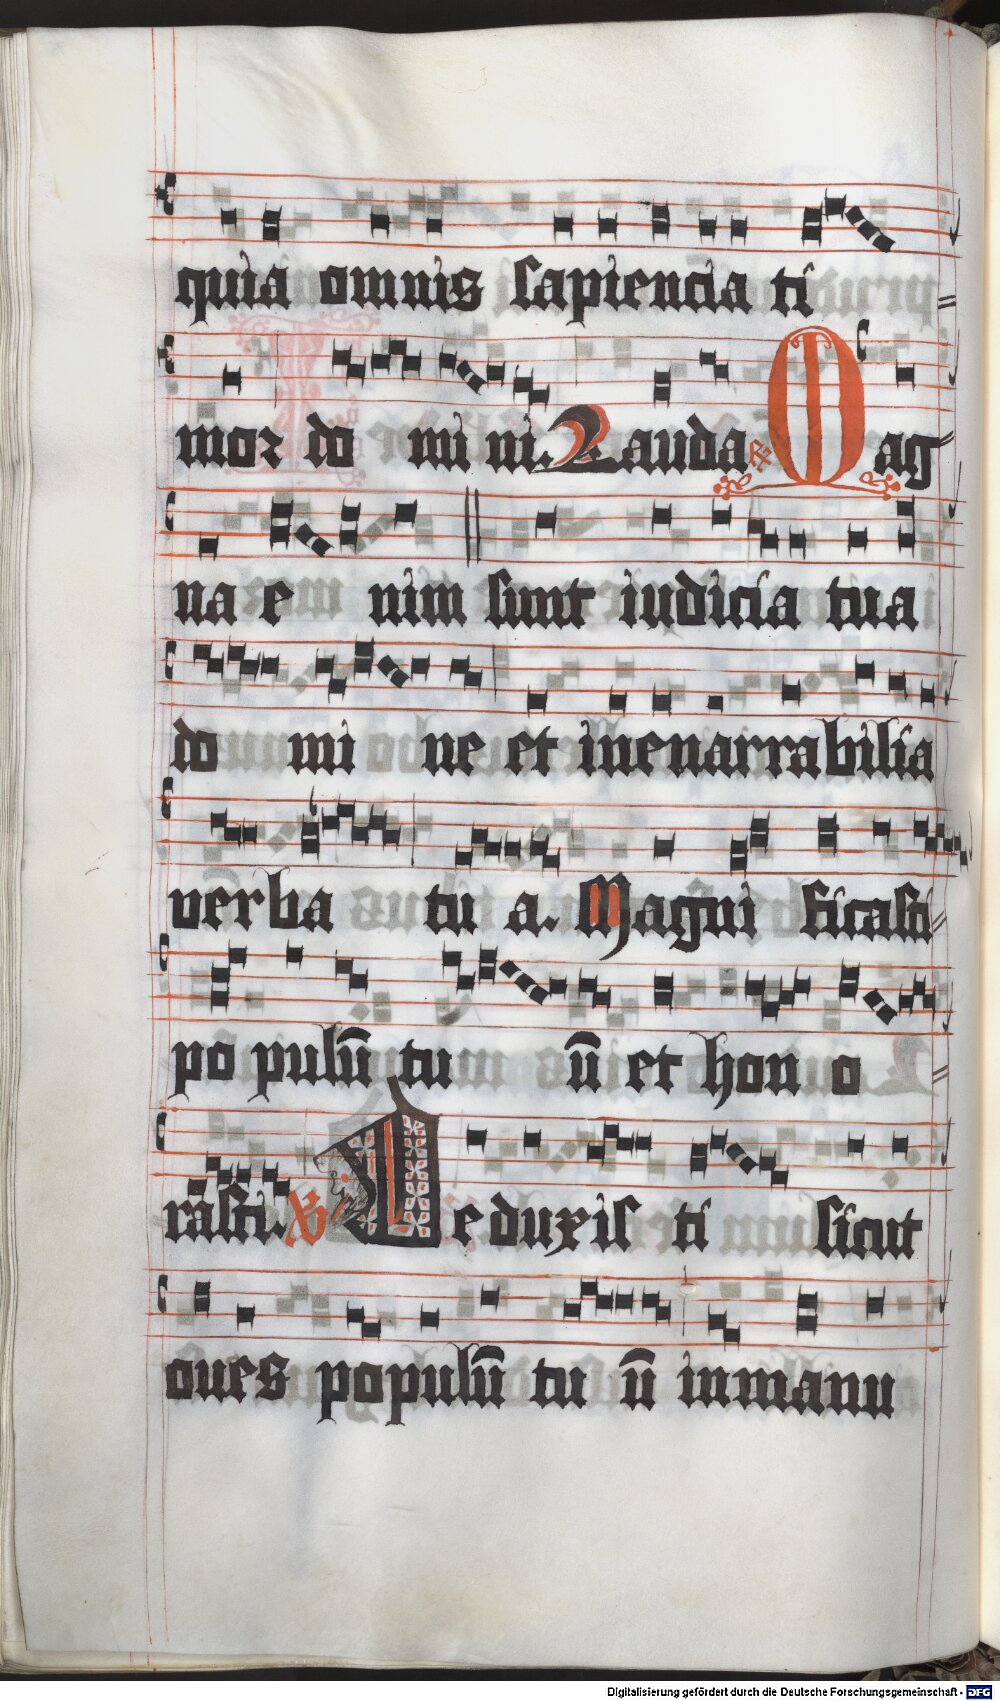 quia omnis sapiencia ti
mor do mi ni. Lauda R Mag
na e nim sunt iudicia tua
do mi ne et inenarrabilia
verba tu a. Magni ficasti
po pulū tu ū et hon o
rasti. V Deduxis ti sicut
oues populū tu ū inmanu
Digitalisierung gefördert durch die Deutsche Forschungsgemeinschaft - DFG